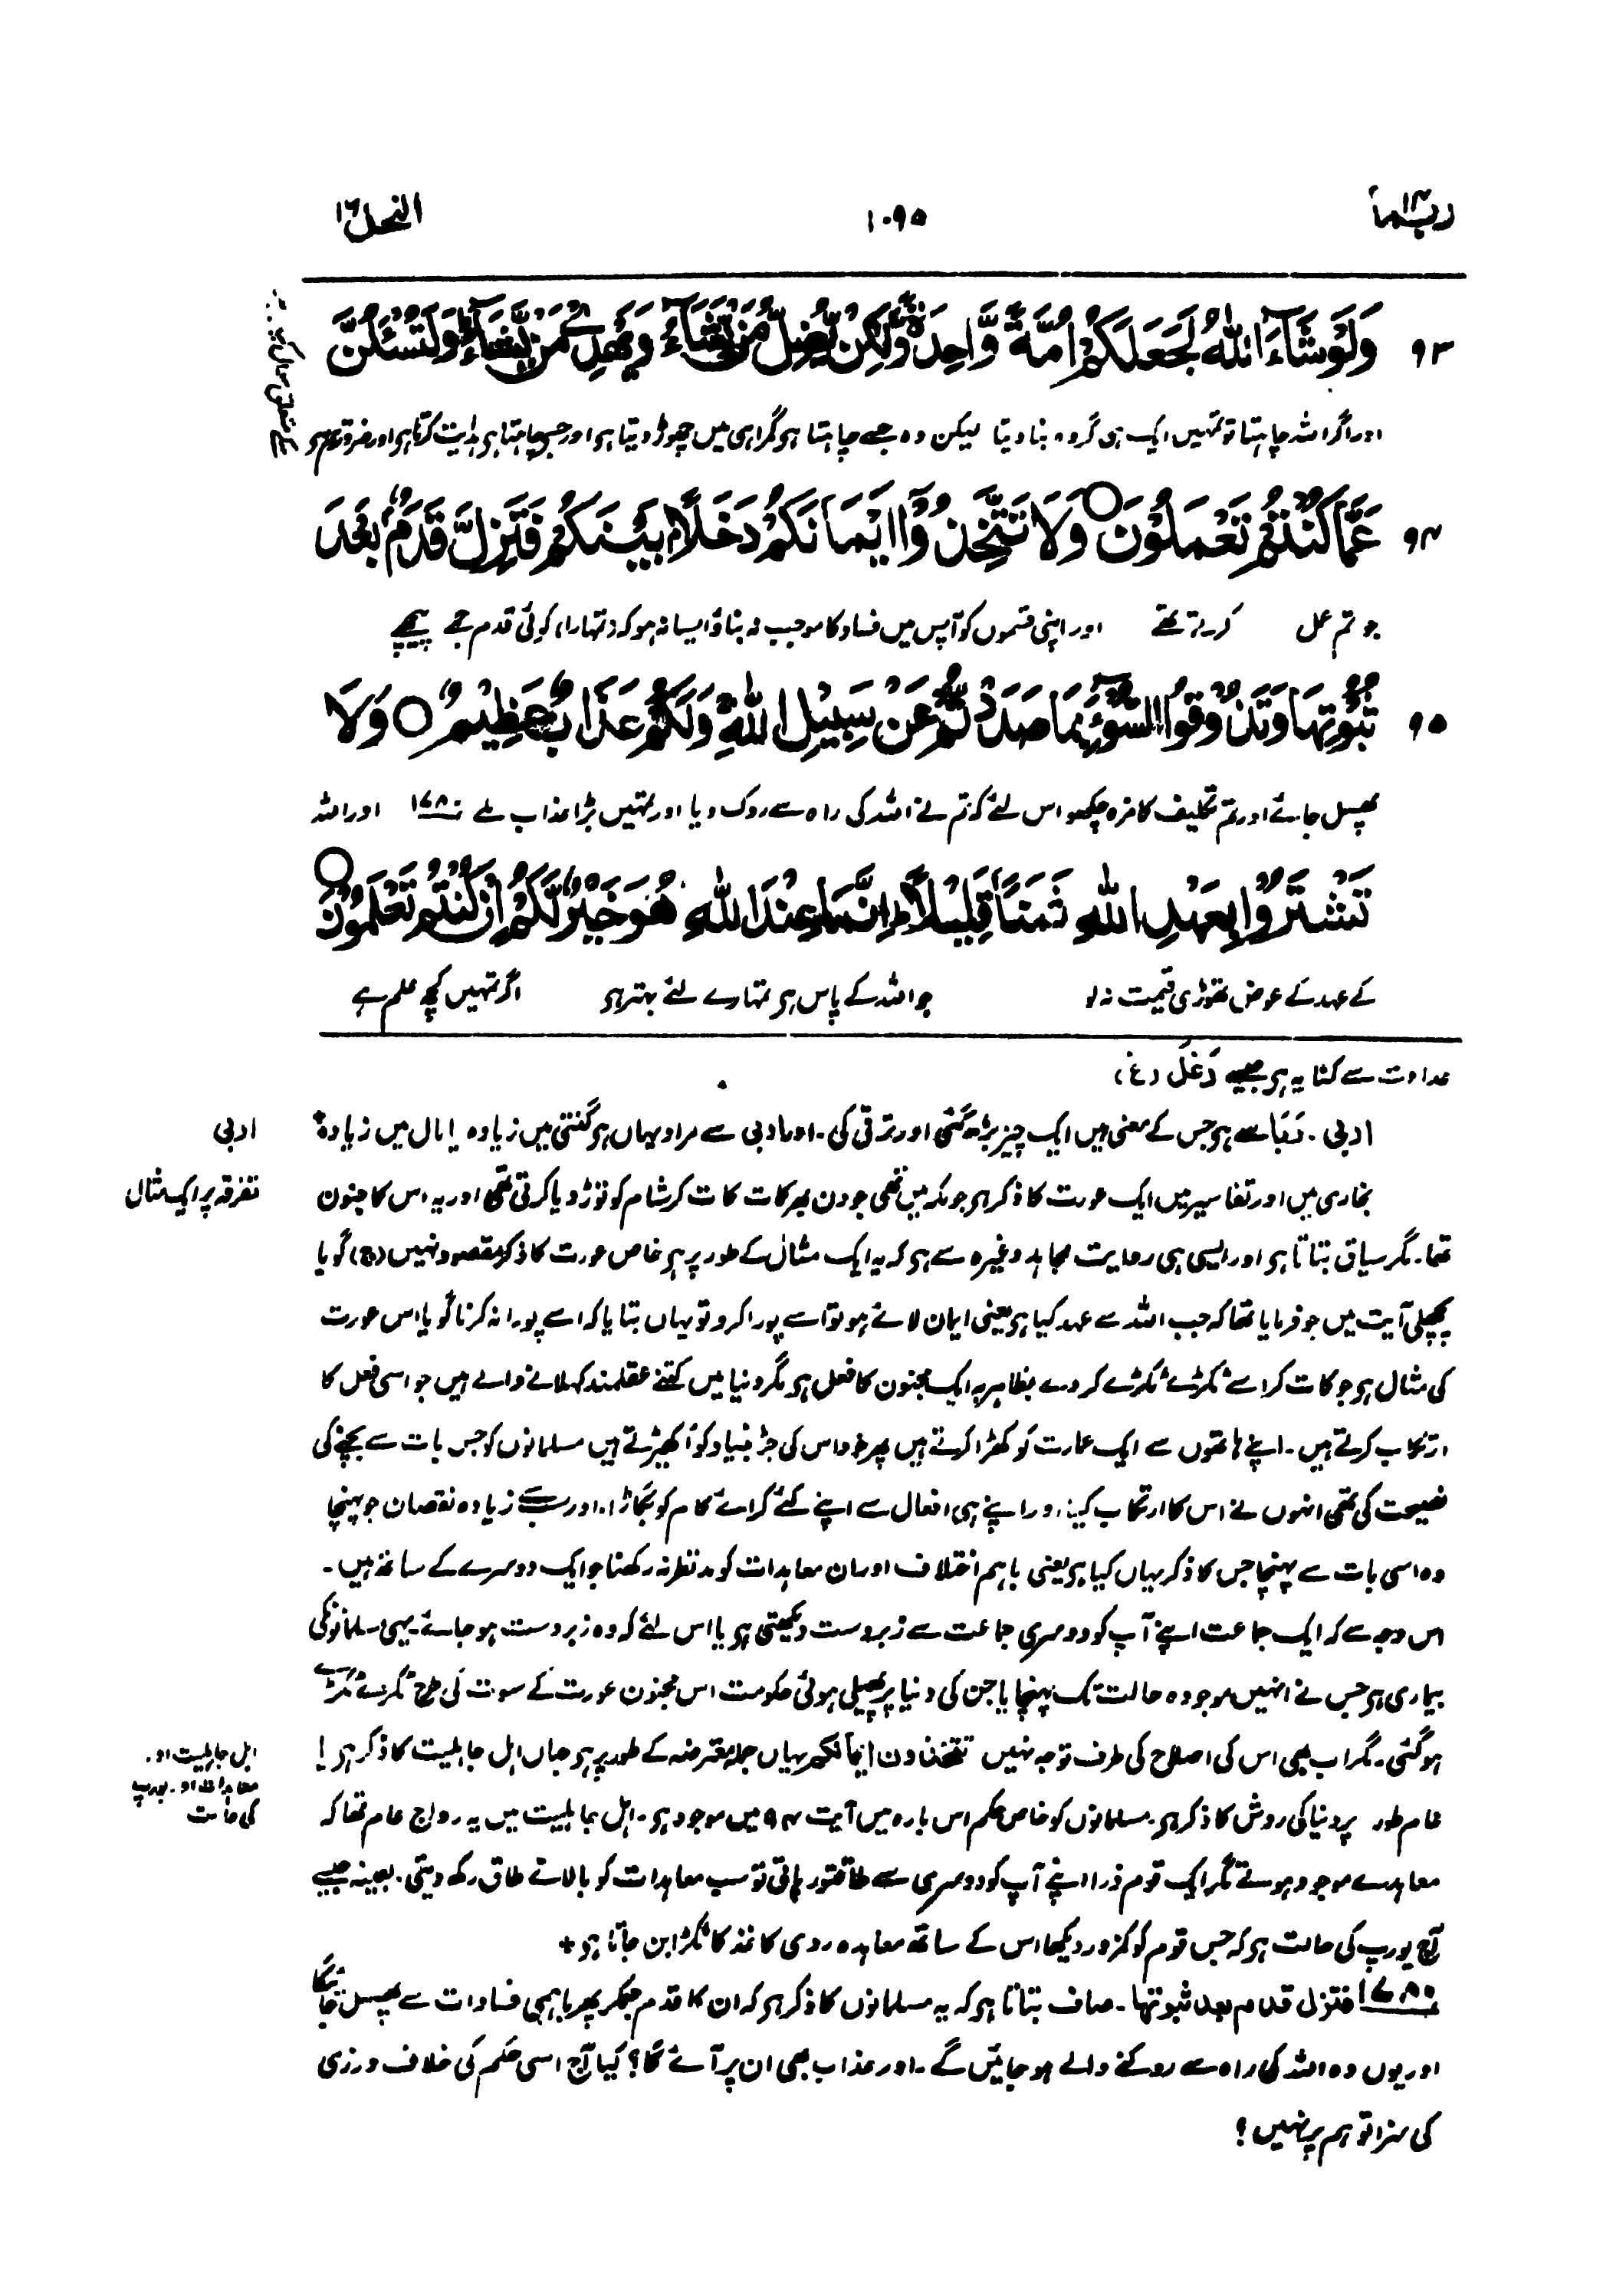 ربما ۱۴
۱۰۹۵
النحل ۱۶
۹۳ وَلَوْ شَآءَ اللّٰهُ لَجَعَلَكُمْ اُمَّةً وَّاحِدَةً وَّلٰكِنْ يُّضِلُّ مَنْ يَّشَآءُ وَيَهْدِيْ مَنْ يَّشَآءُ وَلَتُسْئَلُنَّ
اور اگر اللہ چاہتا تو تمہیں ایک ہی گروہ بنا دیتا لیکن وہ جسے چاہتا ہو گمراہی میں چھوڑ دیتا ہو اور جسے چاہتا ہو ہدایت کرتا ہو اور ضرور تم سے
کے متعلق سوال کیا
۹۴ عَمَّا كُنْتُمْ تَعْمَلُوْنَ ○ وَلَا تَتَّخِذُوْٓا اَيْمَانَكُمْ دَخَلًاۢ بَيْنَكُمْ فَتَزِلَّ قَدَمٌۢ بَعْدَ
جو تم عمل کرتے تھے اور اپنی قسموں کو آپس میں فساد کا موجب نہ بناؤ ایسا نہ ہو کہ (تمہارا) کوئی قدم جمے پیچھے
۹۵ ثُبُوْتِهَا وَتَذُوْقُوا السُّوْٓءَ بِمَا صَدَدْتُّمْ عَنْ سَبِيْلِ اللّٰهِ وَلَكُمْ عَذَابٌ عَظِيْمٌ ○ وَلَا
پھسل جائے اور تم تکلیف کا مزہ چکھو اس لئے کہ تم نے اللہ کی راہ سے روک دیا اور تمہیں بڑا عذاب ملے ۱۷۸۰ اور اللہ
تَشْتَرُوْا بِعَهْدِ اللّٰهِ ثَمَنًا قَلِيْلًا اِنَّمَا عِنْدَ اللّٰهِ هُوَ خَيْرٌ لَّكُمْ اِنْ كُنْتُمْ تَعْلَمُوْنَ ○
کے عہد کے عوض تھوڑی قیمت نہ لو جو اللہ کے پاس ہو تمہارے لئے بہتر ہو اگر تمہیں کچھ علم ہے
عداوت سے کنایہ ہو جیسے دَغَل (غ)
ادبی . رَبَا سے ہو جس کے معنی ہیں ایک چیز بڑھ گئی اور ترقی کی . اور ادبی سے مراد یہاں ہو گنتی میں زیادہ یا مال میں زیادہ
ادبی
بخاری میں اور تفاسیر میں ایک عورت کا ذکر ہو جو مکہ میں تھی جو دن بھر کات کات کر شام کو توڑ دیا کرتی تھی اور یہ اس کا جنون
تفرقہ پر ایک مثال
تھا . مگر سیاق بتاتا ہو اور ایسی ہی روایت مجاہد وغیرہ سے ہو کہ یہ ایک مثال کے طور پر ہو خاص عورت کا ذکر مقصود نہیں (ج) گویا
پچھلی آیت میں جو فرمایا تھا کہ جب اللہ سے عہد کیا ہو یعنی ایمان لائے ہو تو اسے پورا کرو تو یہاں بتایا کہ اسے پورا نہ کرنا گویا اس عورت
کی مثال ہو جو کات کر اسے ٹکڑے ٹکڑے کر دے بظاہر یہ ایک مجنون کا فعل ہو مگر دنیا میں کتنے عقلمند کہلانے والے ہیں جو اسی فعل کا
ارتکاب کرتے ہیں . اپنے ہاتھوں سے ایک عمارت کو کھڑا کرتے ہیں پھر خود اس کی جڑ بنیاد کو اکھیڑتے ہیں مسلمانوں کو جس بات سے بچنے کی
نصیحت کی تھی انہوں نے اس کا ارتکاب کیا اور اپنے ہی افعال سے اپنے کئے کرائے کام کو بگاڑا . اور سب سے زیادہ نقصان جو پہنچا
وہ اسی بات سے پہنچا جس کا ذکر یہاں کیا ہو یعنی باہم اختلاف اور ان معاہدات کو مدنظر نہ رکھنا جو ایک دوسرے کے ساتھ ہیں .
اس وجہ سے کہ ایک جماعت اپنے آپ کو دوسری جماعت سے زبردست دیکھتی ہو یا اس لئے کہ وہ زبردست ہو جائے . یہی مسلمانوں کی
بیماری ہو جس نے انہیں موجودہ حالت تک پہنچایا جن کی دنیا پر پھیلی ہوئی حکومت اس مجنون عورت کے سوت کی طرح ٹکڑے ٹکڑے
ہو گئی . مگر اب بھی اس کی اصلاح کی طرف توجہ نہیں تتخذون ایمانکم یہاں جملہ معترضہ کے طور پر ہو جہاں اہل جاہلیت کا ذکر ہو !
اہل جاہلیت اور
معاہدات اور یورپ
کی حالت
عام طور پر دنیا کی روش کا ذکر ہو . مسلمانوں کو خاص حکم اس بارہ میں آیت ۹۴ میں موجود ہو . اہل جاہلیت میں یہ رواج عام تھا کہ
معاہدے موجود ہوتے مگر ایک قوم ذرا اپنے آپ کو دوسری سے طاقتور پاتی تو سب معاہدات کو بالائے طاق رکھ دیتی . بعینہ جیسے
آج یورپ کی حالت ہو کہ جس قوم کو کمزور دیکھا اس کے ساتھ معاہدہ ردی کاغذ کا ٹکڑا بن جاتا ہو +
۱۷۸۰ فتزل قدم بعد ثبوتھا . صاف بتاتا ہو کہ یہ مسلمانوں کا ذکر ہو کہ ان کا قدم جمکر پھر باہمی فسادات سے پھسل جائیگا
اور یوں وہ اللہ کی راہ سے روکنے والے ہو جائیں گے . اور عذاب بھی ان پر آئے گا ؟ کیا آج اسی حکم کی خلاف ورزی
کی سزا تو ہم پر نہیں ؟